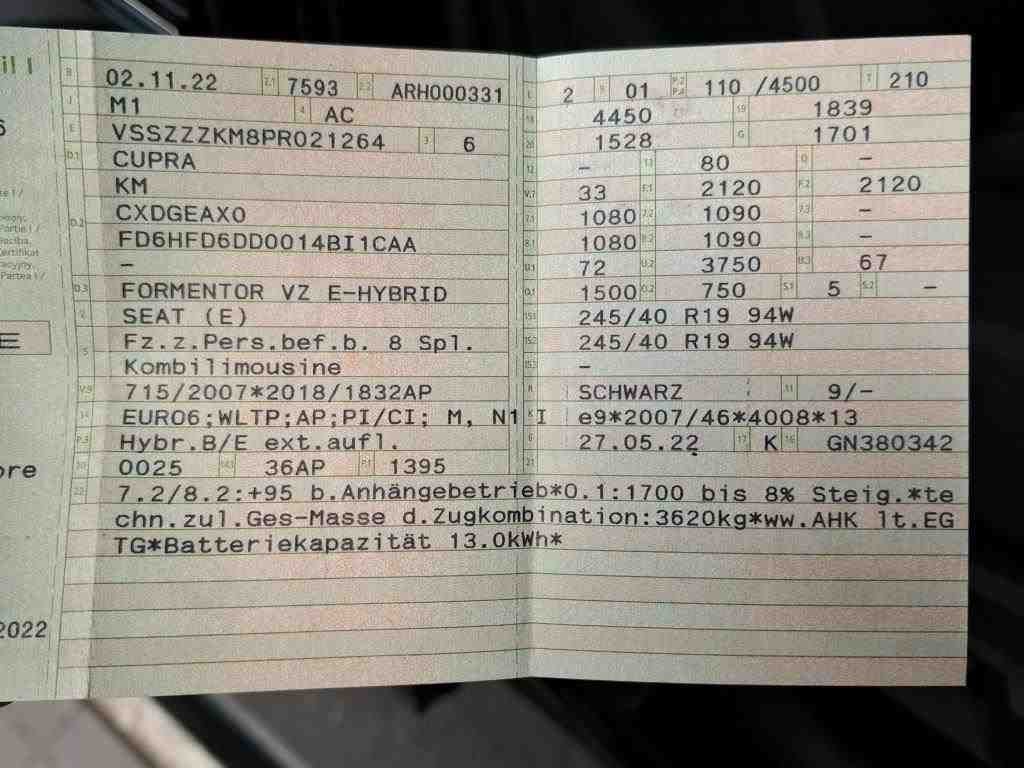 il I
B 02.11.22 2.1 7593 2.2 ARH000331
J M1 4 AC
E VSSZZZKM8PR021264 3 6
D.1 CUPRA
KM
D.2 CXDGEAX0
FD6HFD6DD0014BI1CAA
–
D.3 FORMENTOR VZ E-HYBRID
2 SEAT (E)
5 Fz.z.Pers.bef.b. 8 Spl.
Kombilimousine
V.9 715/2007*2018/1832AP
14 EURO6;WLTP;AP;PI/CI; M, N1 I
P.3 Hybr.B/E ext.aufl.
10 0025 14.1 36AP P.1 1395
L 2 9 01 P.2 P.4 110 /4500 T 210
18 4450 19 1839
20 1528 G 1701
12 – 13 80 Q –
V.7 33 F.1 2120 F.2 2120
7.1 1080 7.2 1090 7.3 –
8.1 1080 8.2 1090 8.3 –
U.1 72 U.2 3750 U.3 67
O.1 1500 O.2 750 S.1 5 S.2 –
15.1 245/40 R19 94W
15.2 245/40 R19 94W
15.3 –
R SCHWARZ 11 9/–
K e9*2007/46*4008*13
6 27.05.22 17 K 16 GN380342
21
22 7.2/8.2:+95 b.Anhängebetrieb*0.1:1700 bis 8% Steig.*te
chn.zul.Ges-Masse d.Zugkombination:3620kg*ww.AHK lt.EG
TG*Batteriekapazität 13.0kWh*
E
ore
2022